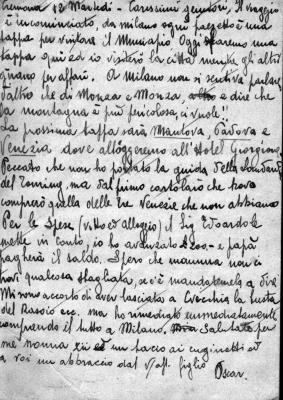 Cremona 12 Martedì - Carissimi genitori, Il viaggio
è incominciato, da Milano ogni pezzetto è una
tappa per visitare il Municipio Oggi faremo una
tappa qui ed io visiterò la città mentre gli altri
girano per affari. A Milano non si sentiva parlare
d'altro che di Monza e Monza, e dire che
la montagna è più pericolosa, ci vuole!!
La prossima tappa sarà Mantova, Padova e
Venezia dove alloggeremo all'Hotel Giorgione
Peccato che non ho portato la guida della Lombardia
del Touring, ma dal primo cartolaio che trovo
comprerò quella delle tre Venezie che non abbiamo
Per le spese (vitto ed alloggio) il Sig Edoardo le
mette in conto, io ho avanzato 2000.- e papà
pagherà il saldo. Spero che mamma non ci
trovi qualcosa sbagliata, se c'è mandatemelo a dire
Mi sono accorto di aver lasciato a la busta
del Rasoio ecc. ma ho rimediato immediatamente
comprando il tutto a Milano. Salutate per
me nonna zii ed un bacio ai cuginetti ed
a voi un abbraccio dal Vost. figlio Oscar.